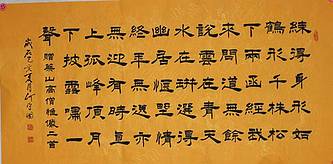 練得身形似
鶴形千株松
下兩函經我
來問道無餘
說雲在青天
水在瓶選得
幽居愜野情
終年無送亦
無迎有時直
上孤峰頂月
下披雲嘯一
聲 贈藥山高僧惟儼二首